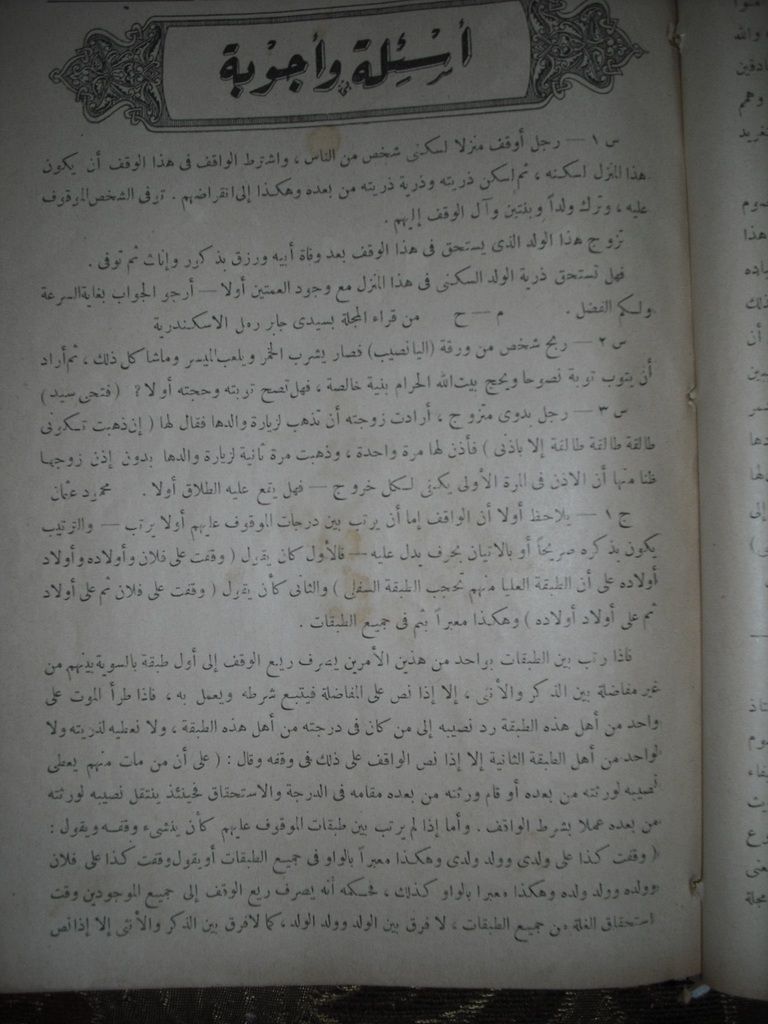 أسئلة وأجوبة
س ١ — رجل أوقف منزلا لسكنى شخص من الناس ، واشترط الواقف فى هذا الوقف أن يكون
هذا المنزل لسكنه ، ثم لسكن ذريته وذرية ذريته من بعده وهكذا إلى انقراضهم . توفى الشخص الموقوف
عليه ، وترك ولداً وبنتين وآل الوقف إليهم .
تزوج هذا الولد الذى يستحق فى هذا الوقف بعد وفاة أبيه ورزق بذكور وإناث ثم توفى .
فهل تستحق ذرية الولد السكنى فى هذا المنزل مع وجود العمتين أولا — أرجو الجواب بغاية السرعة
ولكم الفضل . م — ح من قراء المجلة بسيدى جابر رمل الاسكندرية
س ٢ — ربح شخص من ورقة (اليانصيب) فصار يشرب الخمر ويلعب الميسر وماشاكل ذلك ، ثم أراد
أن يتوب توبة نصوحا ويحج بيت الله الحرام بنية خالصة ، فهل تصح توبته وحجته أو لا ? ( فتحى سيد )
س ٣ — رجل بدوى متزوج ، أرادت زوجته أن تذهب لزيارة والدها فقال لها ( إن ذهبت تكونى
طالقة طالقة طالقة إلا باذنى ) فأذن لها مرة واحدة ، وذهبت مرة ثانية لزيارة والدها بدون إذن زوجها
ظنا منها أن الاذن فى المرة الأولى يكفى لكل خروج — فهل يقع عليه الطلاق أولا . محمود عثمان
ج ١ — يلاحظ أولا أن الواقف إما أن يرتب بين درجات الموقوف عليهم أولا يرتب — والترتيب
يكون بذكره صريحاً أو بالاتيان بحرف يدل عليه — فالأول كأن يقول ( وقفت على فلان وأولاده وأولاد
أولاده على أن الطبقة العليا منهم تحجب الطبقة السفلى ) والثانى كأن يقول ( وقفت على فلان ثم على أولاد
ثم على أولاد أولاده ) وهكذا معبراً بثم فى جميع الطبقات .
فاذا رتب بين الطبقات بواحد من هذين الأمرين يصرف ريع الوقف إلى أول طبقة بالسوية بينهم من
غير مفاضلة بين الذكر والأنثى ، إلا إذا نص على المفاضلة فيتبع شرطه ويعمل به ، فاذا طرأ الموت على
واحد من أهل هذه الطبقة رد نصيبه إلى من كان فى درجته من أهل هذه الطبقة ، ولا نعطيه لذريته ولا
لواحد من أهل الطبقة الثانية إلا إذا نص الواقف على ذلك فى وقفه وقال : ( على أن من مات منهم يعطى
نصيبه لورثته من بعده أو قام ورثته من بعده مقامه فى الدرجة والاستحقاق فحينئذ ينتقل نصيبه لورثته
من بعده عملا بشرط الواقف . وأما إذا لم يرتب بين طبقات الموقوف عليهم كأن ينشىء وقفه ويقول :
( وقفت كذا على ولدى وولد ولدى وهكذا معبراً بالواو فى جميع الطبقات أو يقول وقفت كذا على فلان
وولده وولد ولده وهكذا معبرا بالواو كذلك ، فحكمه أنه يصرف ريع الوقف إلى جميع الموجودين وقت
استحقاق الغلة من جميع الطبقات ، لا فرق بين الولد وولد الولد ، كما لا فرق بين الذكر والأنثى إلا إذا نص